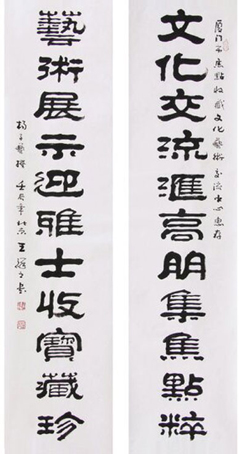 厦门市焦點收藏文化藝術交流中心惠存
文化交流滙高朋集焦點粹
藝術展示迎雅士收寶藏珍
壬辰年